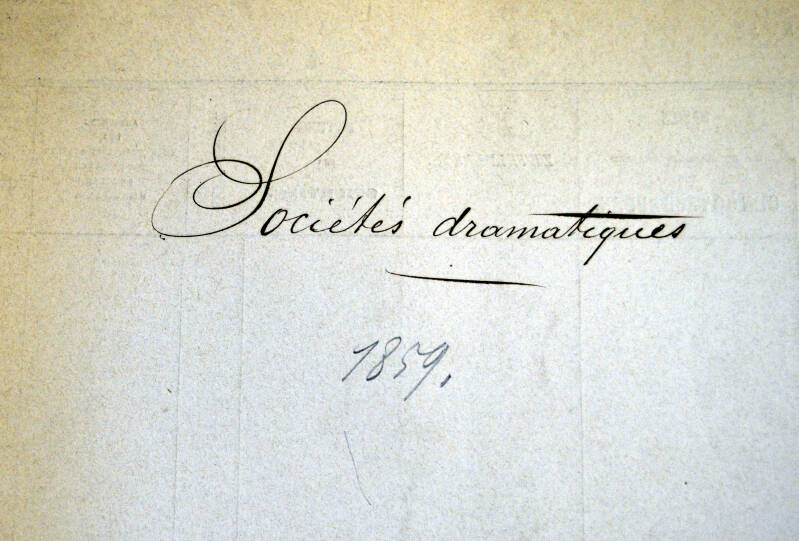 Sociétés dramatiques
1859.